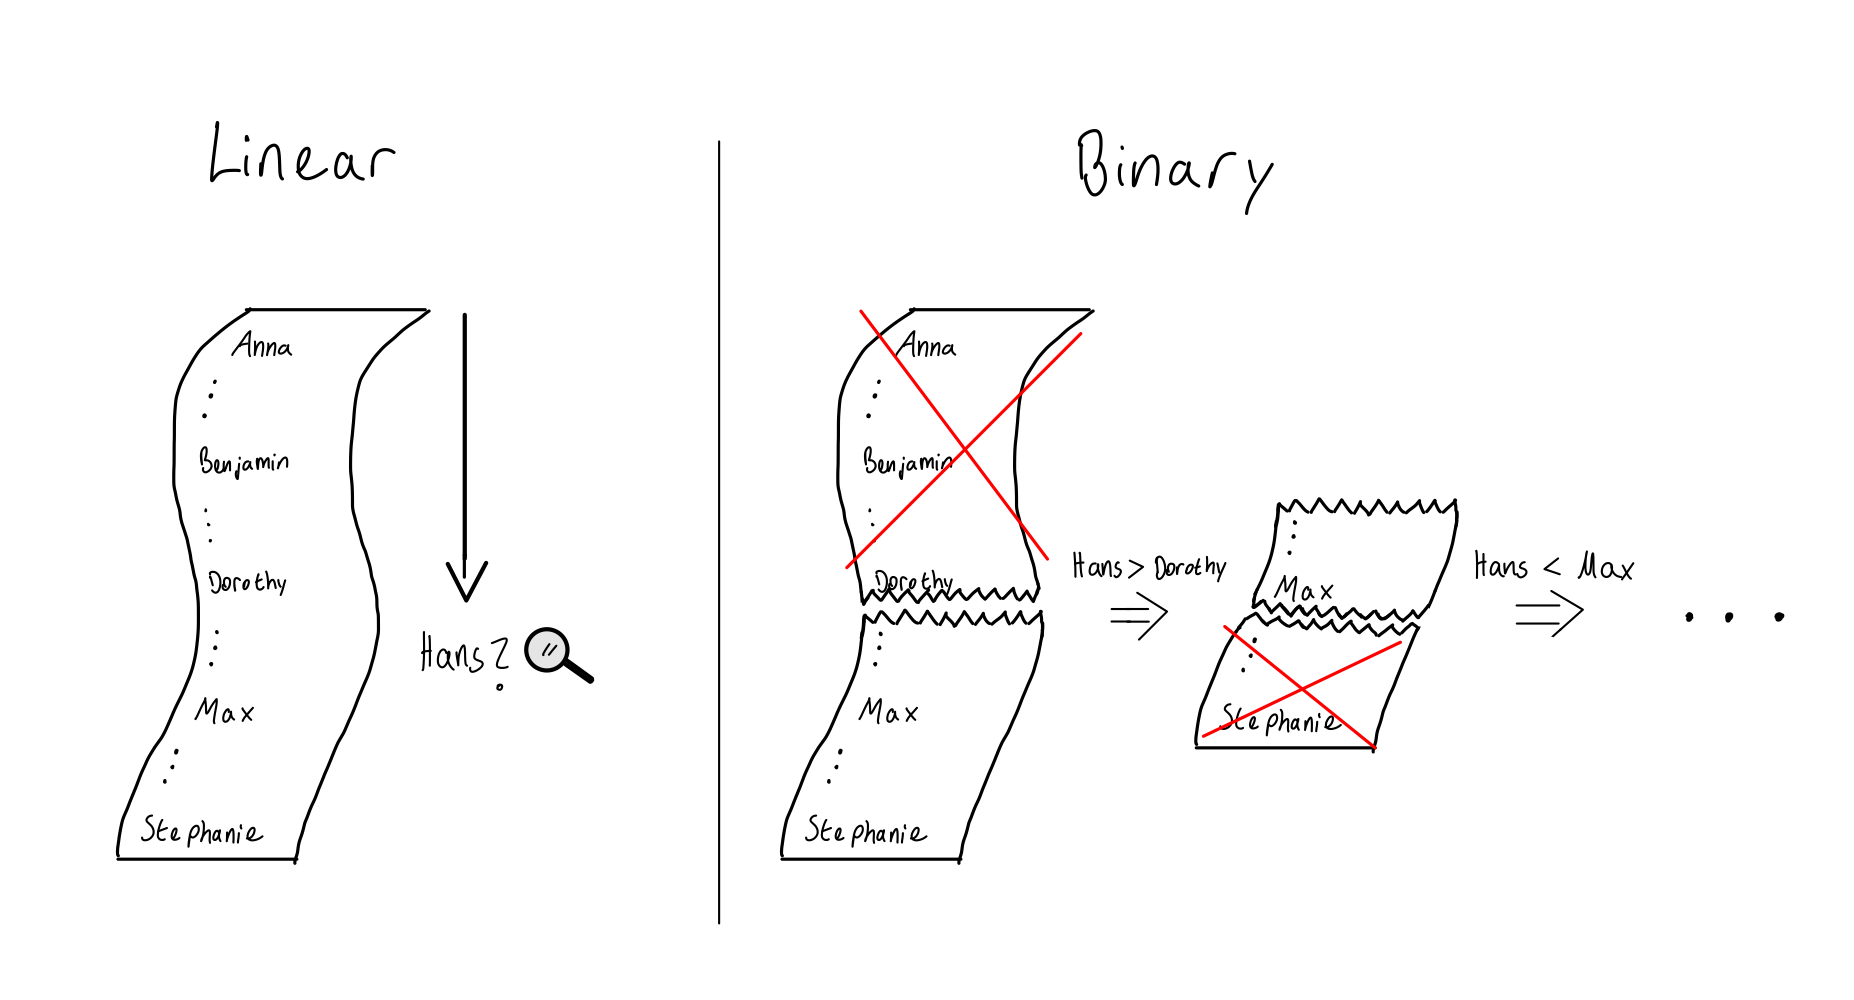 Linear
Anna
Benjamin
Dorothy
Max
Stephanie
Hans?
Binary
Anna
Benjamin
Dorothy
Max
Stephanie
Hans > Dorothy
Max
Stephanie
Hans < Max
. . .